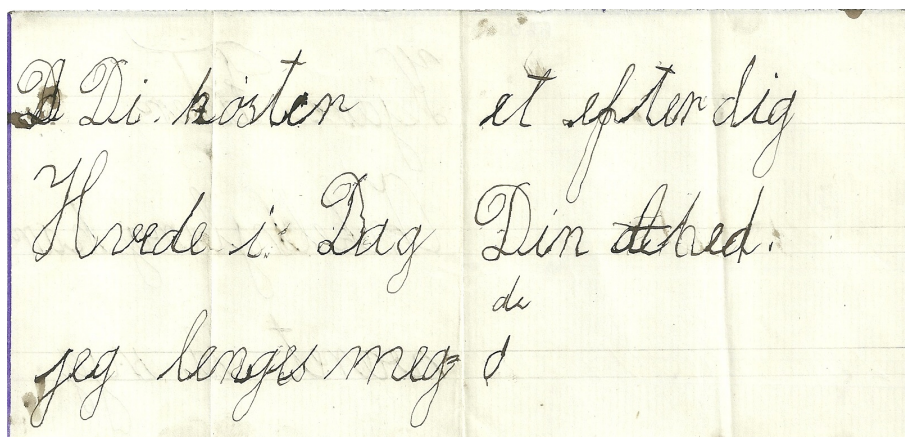 Di. höster
Hvede i. Dag
jeg lenges meg=
et efter dig
Din
de
d